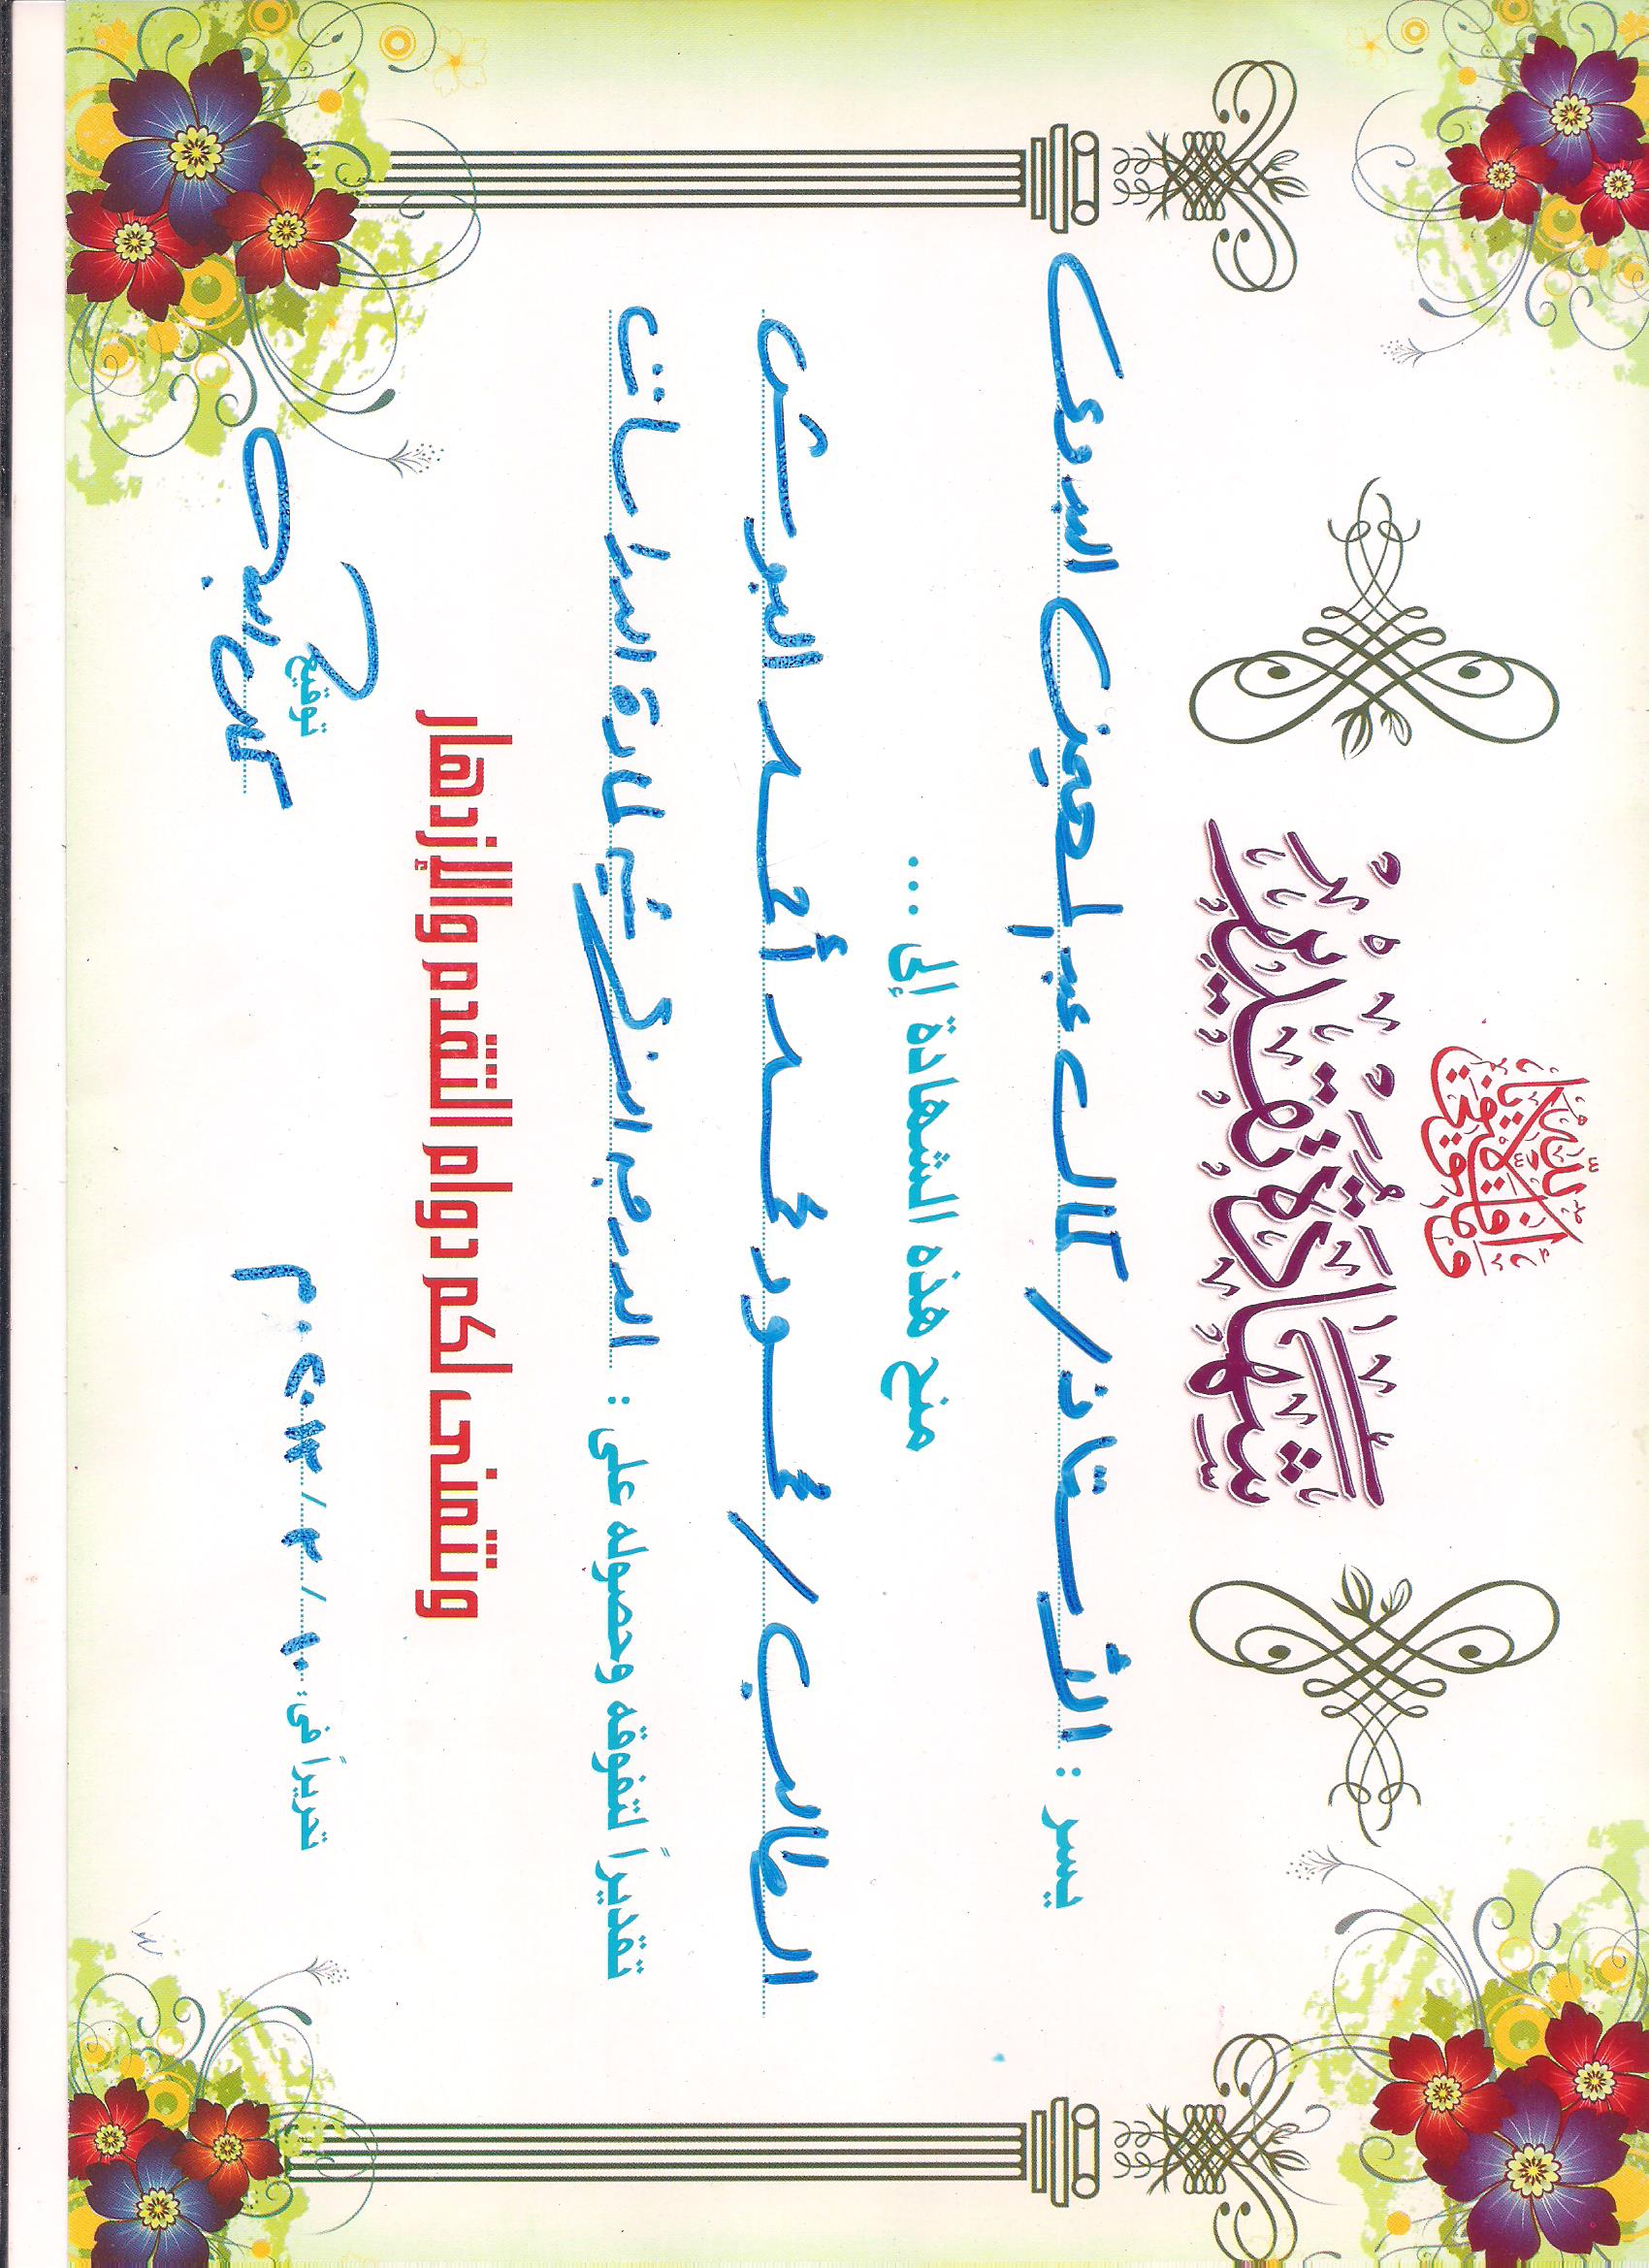 وما توفيقي إلا بالله
شهادة تقدير
يسر : الأستاذ / كمال عبد المعين السبدعى
منح هذه الشهادة إلى ...
الطالب / محمود محمد أحمد
تقديراً لتفوقه وحصوله على : المركز لمادة الدراسات
ونتمنى لكم دوام التقدم والإزدهار
تحريراً فى: ١٠ / ٣ / ٢٠١٣ م
توقيع